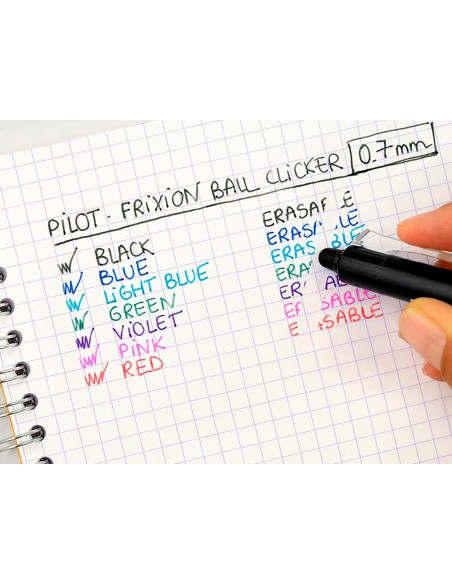 PILOT - FRIXION BALL CLICKER 0.7mm
BLACK
BLUE
LIGHT BLUE
GREEN
VIOLET
PINK
RED
ERASA E
ERAS LE
ERAS BLE
ERA
ER ABL
ER SABLE
E SABLE